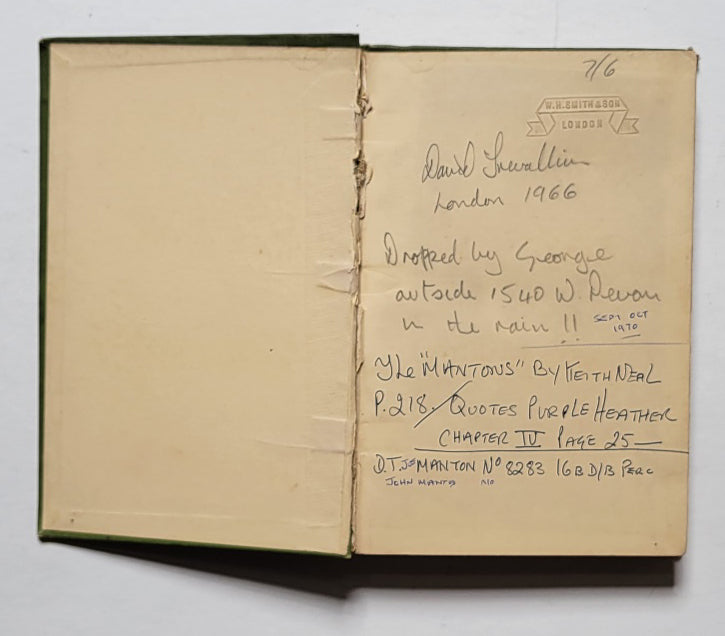 7/6
W.H. SMITH & SON
LONDON
David Trevallion
London 1966
Dropped by Georgie
outside 1540 W. Devon
in the rain !!
SEPT OCT
1970
The "MANTONS" BY KEITH NEAL
P. 218. QUOTES PURPLE HEATHER
CHAPTER IV PAGE 25—
D.T. MANTON Nº 8283 16B D/B PERC
JOHN MANTO NO